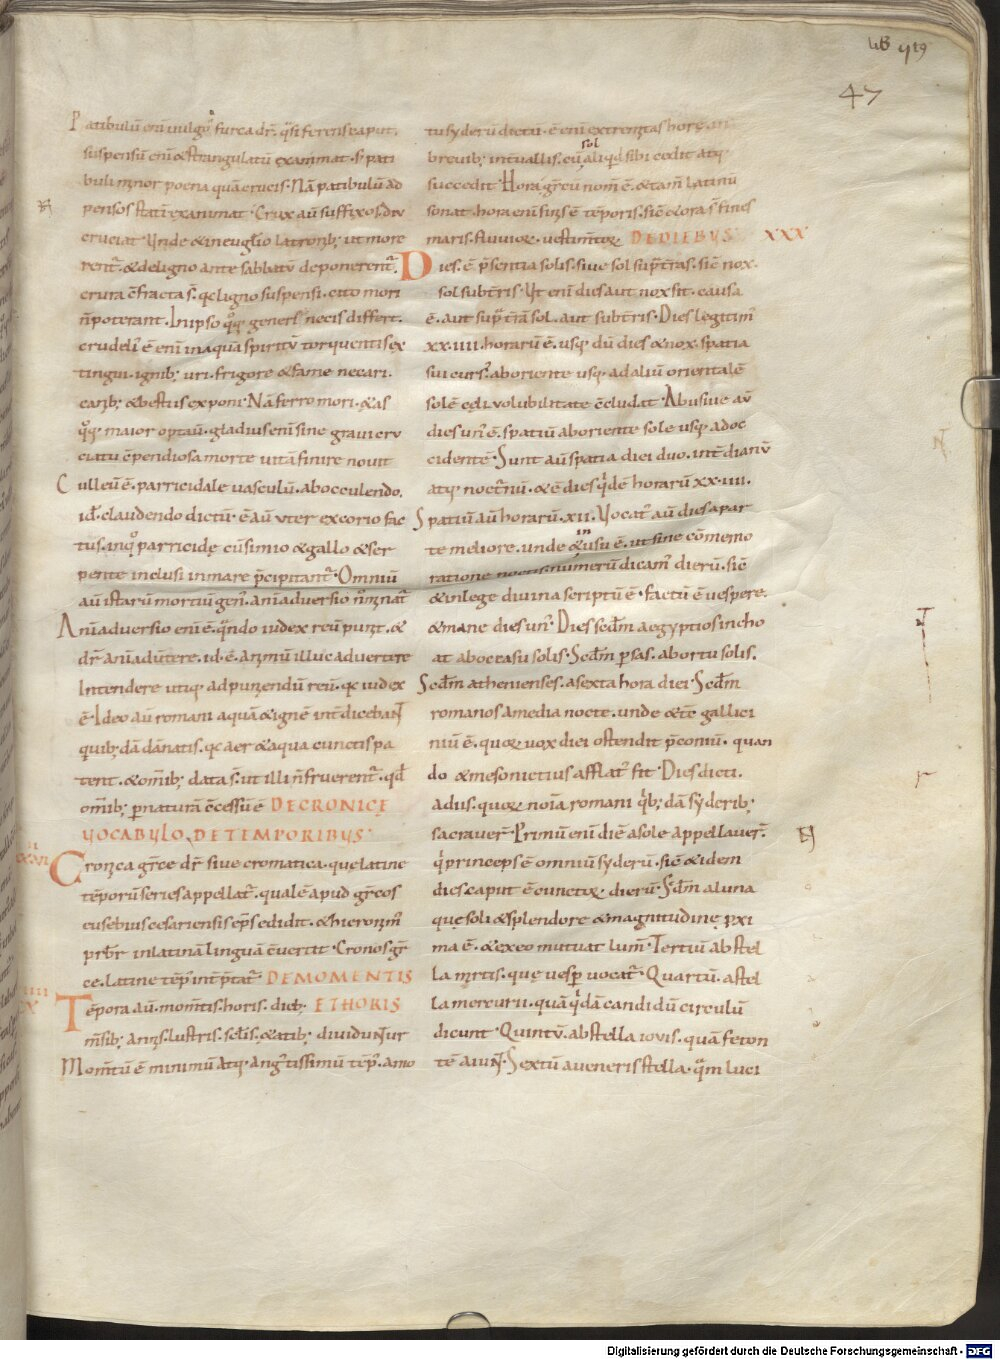 47
Patibulū enī uulgo furca dr̄. q̄si ferens caput.
suspensū enī & strangulatū examinat. s; pati
buli minor poena quā crucis. Nā patibulū ad
pensos statī exanimat. Crux aū suffixos diu
cruciat. Unde & in euglio latronib; ut more
rent̄. & de ligno ante sabbatū deponerent̄.
crura c̄fracta s̄. qc ligno suspensi. cito mori
n̄ poterant. In ipso q̊q; generi necis differt.
crudeli' ē enī in aqua spiritū torquentis ex
tingui. ignib; uri. frigore & fame necari.
canib; & bestiis exponi. Nā ferro mori. & as
q̊q; maior optau. gladius enī sine graui cru
ciatu c̄pendiosa morte uitā finire nouit
Culleū ē. parricidale uasculū. ab occulendo.
id. claudendo dictū. ē aū uter ex corio fac
tus. inq̊ parricidę cū simio & gallo & ser
pente inclusi in mare p̄cipitant̄. Omniū
aū istarū mortiū gen'. animaduersio n̄minat̄
Animaduersio enī ē. q̄ndo iudex reū punit. &
dr̄ animaduertere. id. ē. animū illuc aduertere
Intendere utiq; ad puniendū reū. qc iudex
ē. Ideo aū romani aquā & ignē int̄dicebant
quib; dā dānatis. qc aer & aqua cunctis pa
tent. & omīb; data s̄. ut illi n̄ fruerent̄. qd
omīb; p naturā c̄cessū ē DE CRONICĘ
VOCABVLO DE TEMPORIBVS.
Cronica grece dr̄ siue cromatica. quę latine
tēporū series appellat̄. qualē apud grecos
eusebius cesariensis eps edidit. & hieronim'
prbr̄ in latinā linguā c̄uertit. Cronos gr̄
ce. latine tēp' int̄p̄tat̄ DE MOMENTIS
Tēpora aū. momtis. horis. dieb; ET HORIS
m̄sib; annis. lustris. sclis. & atib; diuidunt̄ur
Momtū ē minimū atq; angustissimū tēp'. a mo
tu syderū dictū. ē enī extremitas horę. in
breuib; int̄uallis. cū aliqd sibi cedit atq;
sol
succedit. Hora grecū nom̄ ē. & tam̄ latinū
sonat. hora enī finis ē tēporis. sic & ora s̄ fines
maris. fluuior. uestimtor DE DIEBVS. XXX
Dies. ē p̄sentia solis. siue sol sup̄ t̄ras. sic nox.
sol sub t̄ris. Ut enī dies aut nox sit. causa
ē. aut sup̄ t̄rā sol. aut sub t̄ris. Dies legitim'
xx. iiii. horarū ē. usq; dū dies & nox. spatia
sui curs'. ab oriente usq; ad aliū orientalē
solē cęli uolubilitate c̄cludat. Abusiue aū
dies un' ē. spatiū ab oriente sole usq; ad oc
cidentē. Sunt aū spatia diei duo. int̄dianū
atq; noct̄nū. & ē dies q̄dē horarū xx. iiii.
Spatiū aū horarū. xii. Vocat' aū dies a par
te meliore. unde & usu ē. ut sine cōmemo
in
ratione noctis. numerū dicam' dierū. sic
& in lege diuina scriptū ē. factū ē uespere.
& mane dies un'. Dies scdm aegyptios incho
at ab occasu solis. Scdm persas. ab ortu solis.
Scdm athenienses. a sexta hora diei. Scdm
romanos a media nocte. unde & tē gallici
niū ē. quor uox diei ostendit p̄coniū. quan
do & mesonictius afflat' fit. Dies dicti.
a diis. quor noīa romani q̄b; dā syderib;
sacrauer̄. Primū enī diē a sole appellauer̄.
q̄ princeps ē omniū syderū. sic & idem
dies caput ē cunctor dierū. Scdm a luna
quę soli & splendore & magnitudinę pxi
ma ē. & ex eo mutuat lum'. Tertiū ab stel
la martis. quę uesp uocat̄. Quartū. a stel
la mercurii. quā q̄dā candidū circulū
dicunt. Quintū. ab stella iouis. quā feton
tē aiunt. Sextū a ueneris stella. q̄m luci
Digitalisierung gefördert durch die Deutsche Forschungsgemeinschaft - DFG